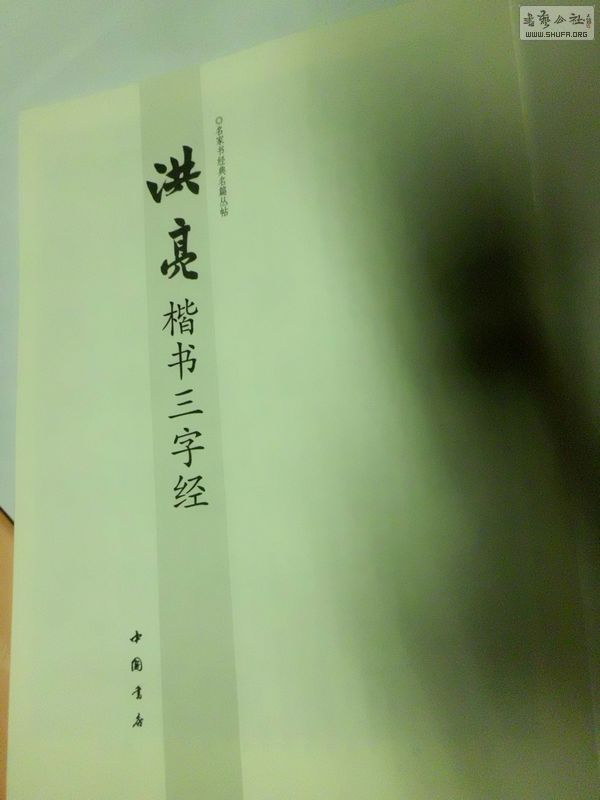 书艺公社
WWW.SHUFA.ORG
◎名家书经典名篇丛帖
洪亮
楷书三字经
中国书店